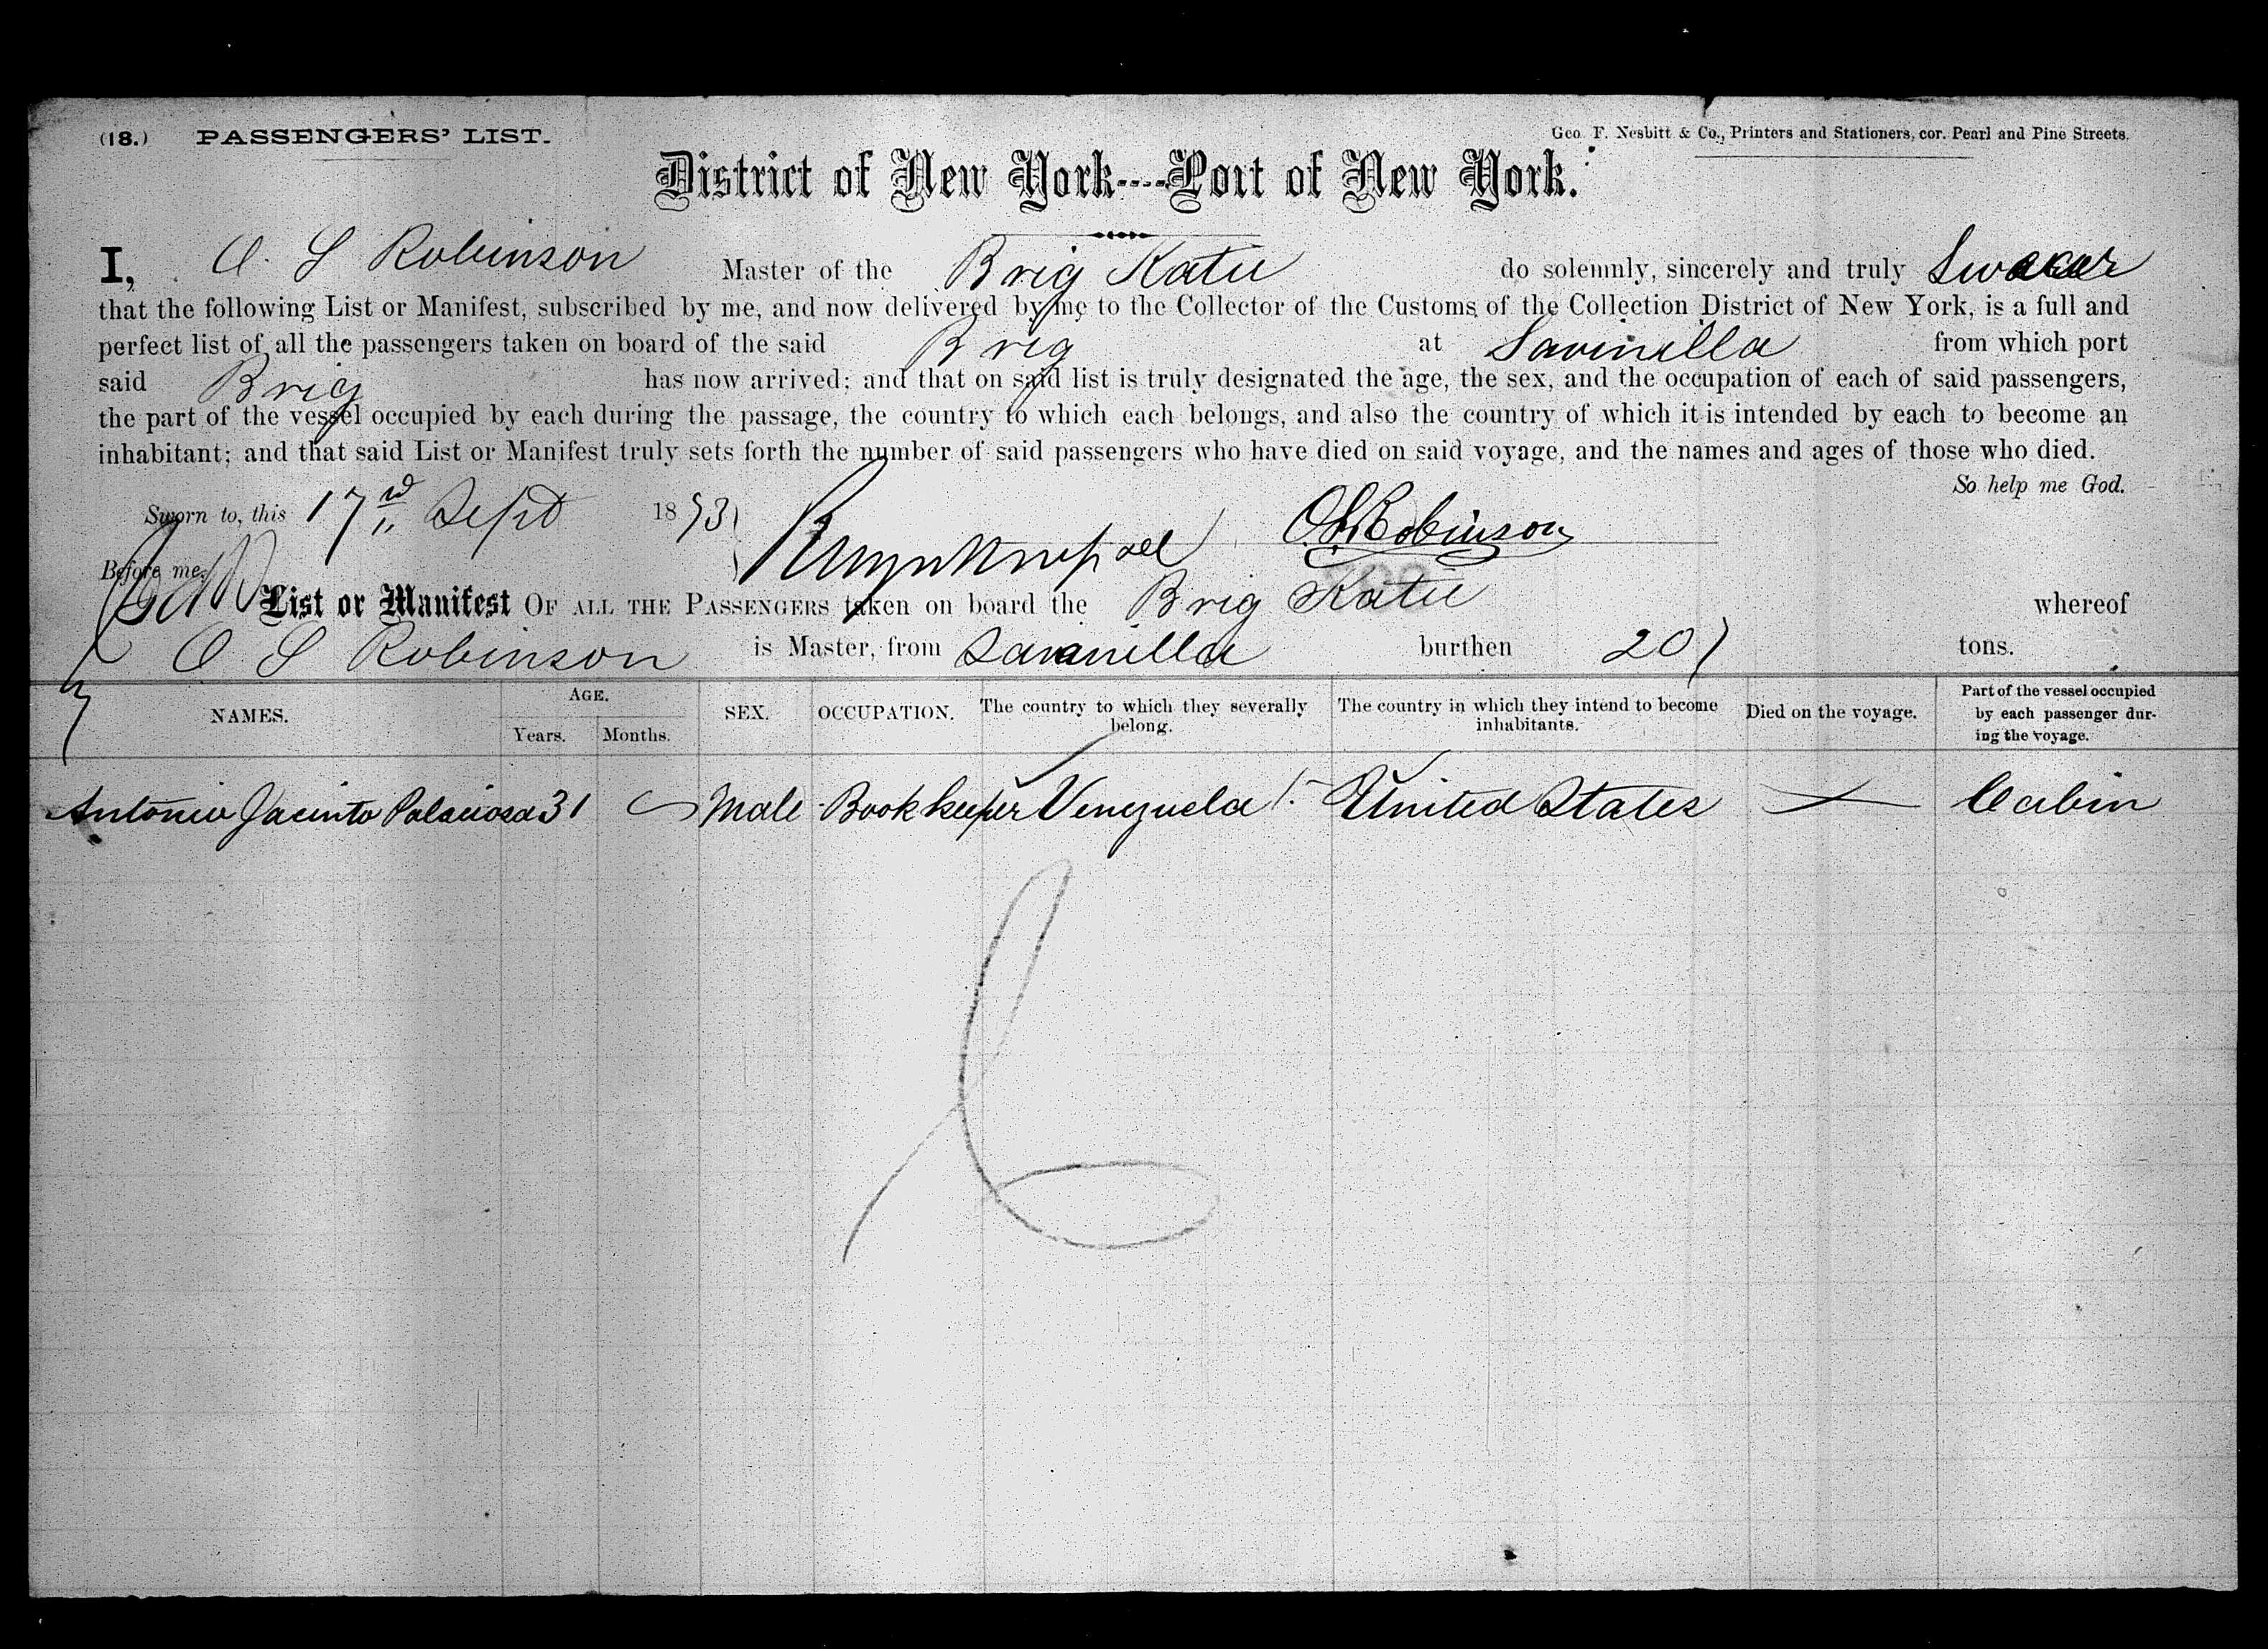 (18.) PASSENGERS' LIST.
Geo. F. Nesbitt & Co., Printers and Stationers, cor. Pearl and Pine Streets.
District of New York----Port of New York.
I, O. S Robinson Master of the Brig Katie do solemnly, sincerely and truly Swear
that the following List or Manifest, subscribed by me, and now delivered by me to the Collector of the Customs of the Collection District of New York, is a full and
perfect list of all the passengers taken on board of the said Brig at Savinilla from which port
said Brig has now arrived; and that on said list is truly designated the age, the sex, and the occupation of each of said passengers,
the part of the vessel occupied by each during the passage, the country to which each belongs, and also the country of which it is intended by each to become an
inhabitant; and that said List or Manifest truly sets forth the number of said passengers who have died on said voyage, and the names and ages of those who died.
So help me God.
Sworn to, this 17 Sept 1873
O. S. Robinson
Before me,
List or Manifest OF ALL THE PASSENGERS taken on board the Brig Katie whereof
O S Robinson is Master, from Savanilla burthen 207 tons.
NAMES.
AGE.
Years. Months.
SEX.
OCCUPATION.
The country to which they severally
belong.
The country in which they intend to become
inhabitants.
Died on the voyage.
Part of the vessel occupied
by each passenger dur-
ing the voyage.
Antonio Jacinto 31 Male Bookkeeper Venezuela United States Cabin